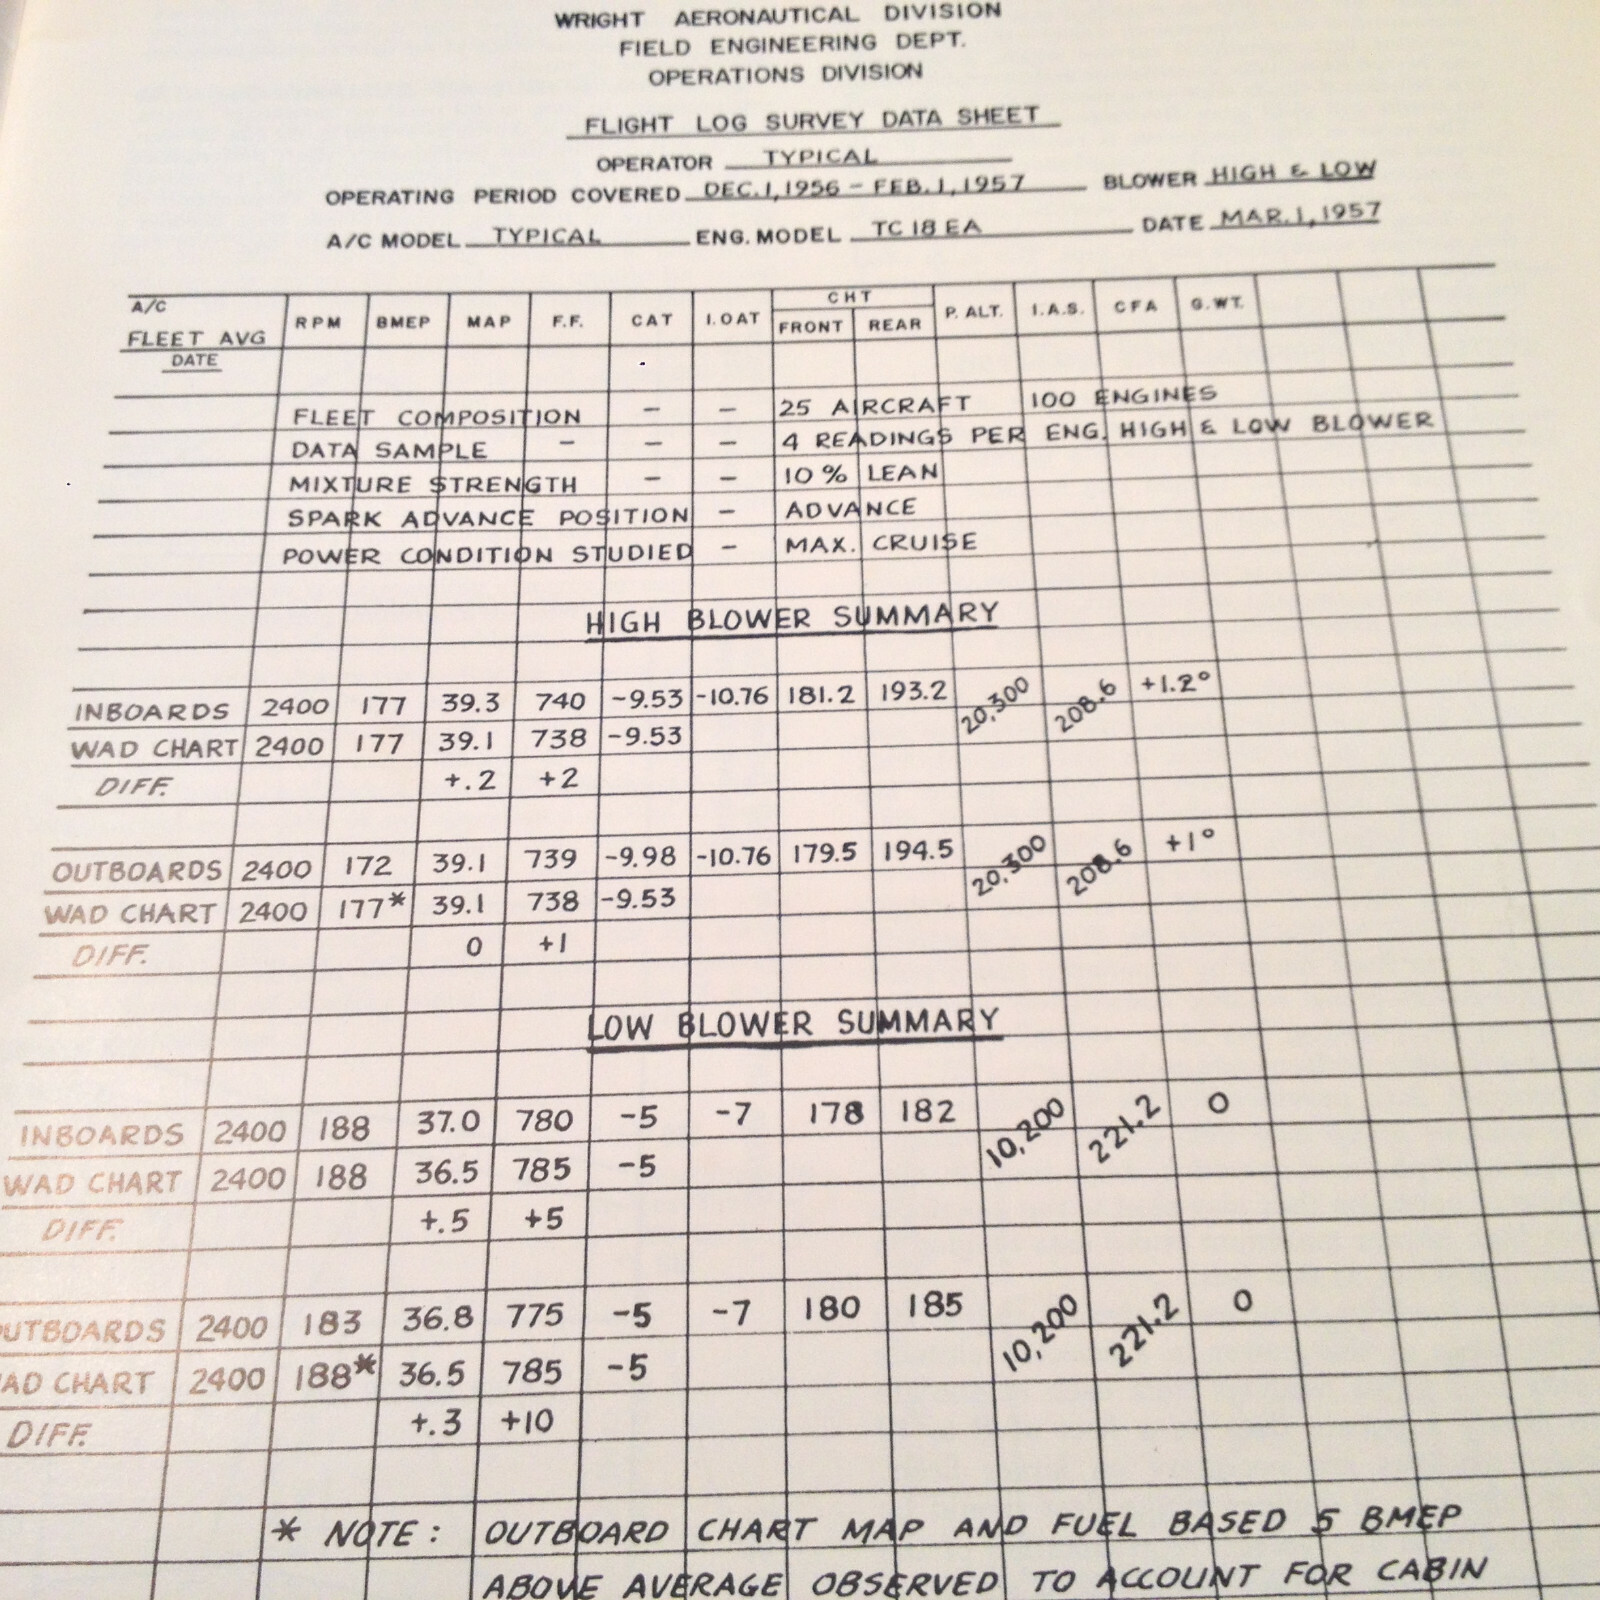 WRIGHT AERONAUTICAL DIVISION
FIELD ENGINEERING DEPT.
OPERATIONS DIVISION
FLIGHT LOG SURVEY DATA SHEET
OPERATOR TYPICAL
OPERATING PERIOD COVERED DEC. 1, 1956 – FEB. 1, 1957 BLOWER HIGH & LOW
A/C MODEL TYPICAL ENG. MODEL TC 18 EA DATE MAR. 1, 1957
A/C FLEET AVG DATE RPM BMEP MAP F.F. CAT I.OAT CHT FRONT REAR P. ALT. I.A.S. CFA G.WT.
FLEET COMPOSITION – – 25 AIRCRAFT 100 ENGINES
DATA SAMPLE – – – 4 READINGS PER ENG. HIGH & LOW BLOWER
MIXTURE STRENGTH – – 10% LEAN
SPARK ADVANCE POSITION – ADVANCE
POWER CONDITION STUDIED – MAX. CRUISE
HIGH BLOWER SUMMARY
INBOARDS 2400 177 39.3 740 -9.53 -10.76 181.2 193.2 20,300 208.6 +1.2°
WAD CHART 2400 177 39.1 738 -9.53
DIFF. +.2 +2
OUTBOARDS 2400 172 39.1 739 -9.98 -10.76 179.5 194.5 20,300 208.6 +1°
WAD CHART 2400 177* 39.1 738 -9.53
DIFF. 0 +1
LOW BLOWER SUMMARY
INBOARDS 2400 188 37.0 780 -5 -7 178 182 10,200 221.2 0
WAD CHART 2400 188 36.5 785 -5
DIFF. +.5 +5
UTBOARDS 2400 183 36.8 775 -5 -7 180 185 10,200 221.2 0
AD CHART 2400 188* 36.5 785 -5
DIFF. +.3 +10
* NOTE: OUTBOARD CHART MAP AND FUEL BASED 5 BMEP
ABOVE AVERAGE OBSERVED TO ACCOUNT FOR CABIN